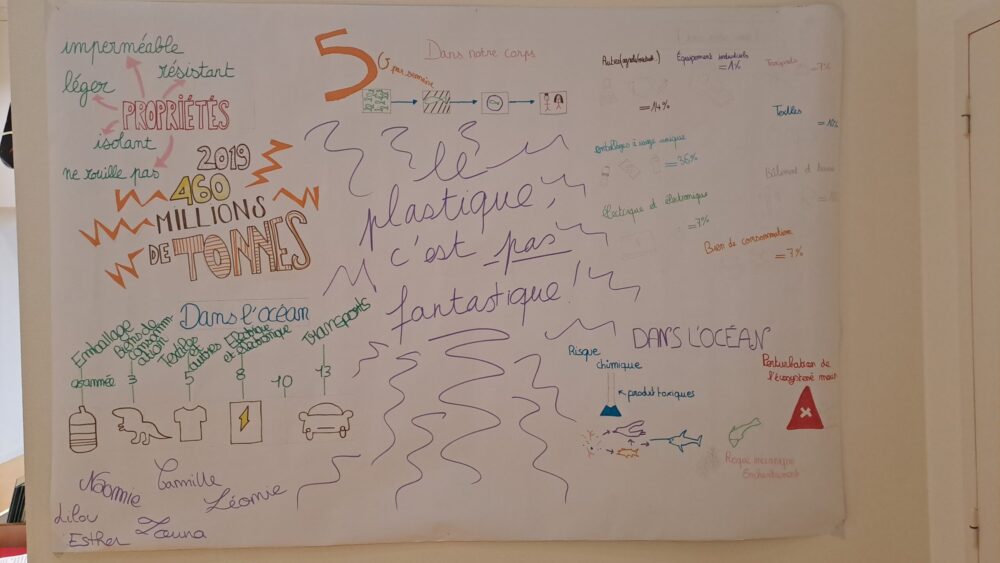 imperméable
résistant
léger
PROPRIÉTÉS
isolant
ne rouille pas
2019
460
MILLIONS
DE TONNES
5
G par semaine
Dans notre corps
le
plastique,
c'est pas
fantastique!
=14%
Équipement industriels
=1%
Transports =7%
Textiles
=10%
emballages à usage unique
=36%
Électrique et électronique
=7%
Bâtiment
Bien de consommation
=7%
Dans l'océan
Emballage
Biens de
consomm
ation
Textilage
et
autres
Electrique
et electronique
Transports
3
5
8
10
13
DANS L'OCÉAN
Risque
chimique
produit toxiques
Perturbation de
l'écosystème
Risque mécanique
Enchevêtrement
Naomie
Camille
Léonie
Lilou
Esther